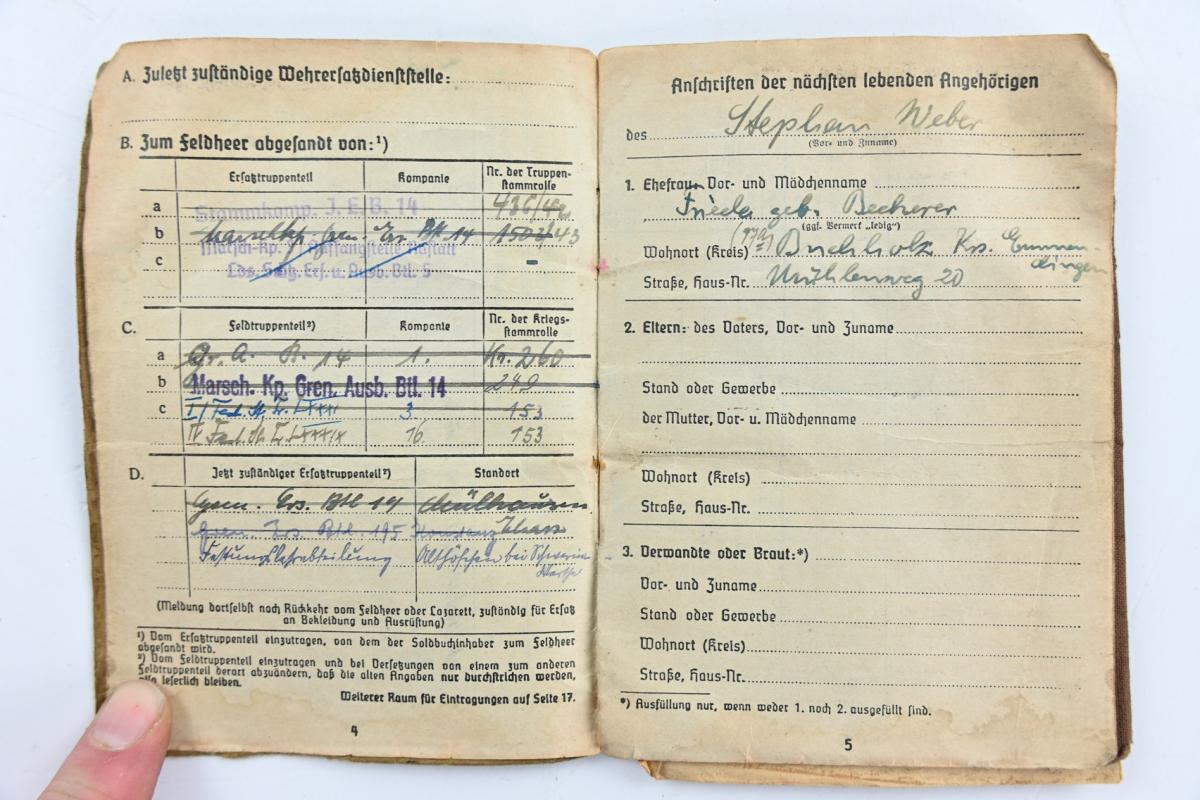 A. Zuletzt zuständige Wehrersatzdienststelle:
B. Zum Feldheer abgesandt von:¹)
Ersatztruppenteil Kompanie Nr. der Truppen-
stammrolle
a Stammkomp. J. E. B. 14 436/42
b Marschkp. Gren. Ers. Btl. 14 1503/43
Marsch-Kp. Rastatt
c Lds. Schtz. Ers. u. Ausb. Btl. 5 -
C. Feldtruppenteil²) Kompanie Nr. der Kriegs-
stammrolle
a Gr. A. B. 14 1. Kr. 260
b Marsch. Kp. Gren. Ausb. Btl. 14 240
c I/ Fest. 3 153
IV. Fest. 16. 153
D. Jetzt zuständiger Ersatztruppenteil²) Standort
Gren. Ers. Btl 14 Mülhausen
Gren. Ers. Btl. 195 Konstanz Elsass
Festungslehrabteilung Althöfchen bei Schwerin
Warthe
(Meldung dortselbst nach Rückkehr vom Feldheer oder Lazarett, zuständig für Ersatz
an Bekleidung und Ausrüstung)
¹) Vom Ersatztruppenteil einzutragen, von dem der Soldbuchinhaber zum Feldheer
abgesandt wird.
²) Vom Feldtruppenteil einzutragen und bei Versetzungen von einem zum anderen
Feldtruppenteil derart abzuändern, daß die alten Angaben nur durchstrichen werden,
also leserlich bleiben.
Weiterer Raum für Eintragungen auf Seite 17.
4
Anschriften der nächsten lebenden Angehörigen
des Stephan Weber
(Vor- und Zuname)
1. Ehefrau: Vor- und Mädchenname
Frieda geb. Becherer
(ggf. Vermerk „ledig")
Wohnort (Kreis) Buchholz Krs. Emmen-
dingen
Straße, Haus-Nr. Mühlenweg 20
2. Eltern: des Vaters, Vor- und Zuname
Stand oder Gewerbe
der Mutter, Vor- u. Mädchenname
Wohnort (Kreis)
Straße, Haus-Nr.
3. Verwandte oder Braut:*)
Vor- und Zuname
Stand oder Gewerbe
Wohnort (Kreis)
Straße, Haus-Nr.
*) Ausfüllung nur, wenn weder 1. noch 2. ausgefüllt sind.
5